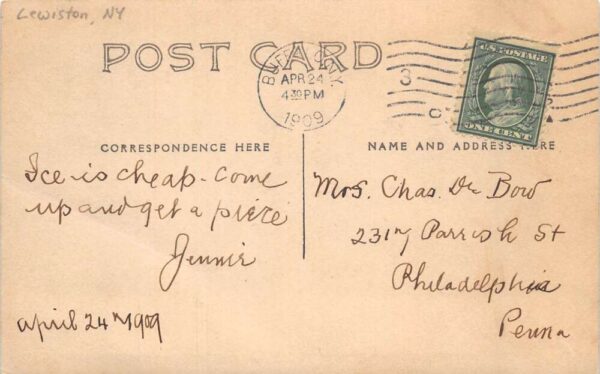 Lewiston, NY
POST CARD
BUFFALO, N.Y.
APR 24
4 30 PM
1909
3
U.S. POSTAGE
ONE CENT
CORRESPONDENCE HERE
NAME AND ADDRESS HERE
Ice is cheap. Come
up and get a piece
Jennie
April 24th 1909
Mrs. Chas. De Bow
2317 Parrish St
Philadelphia
Penna